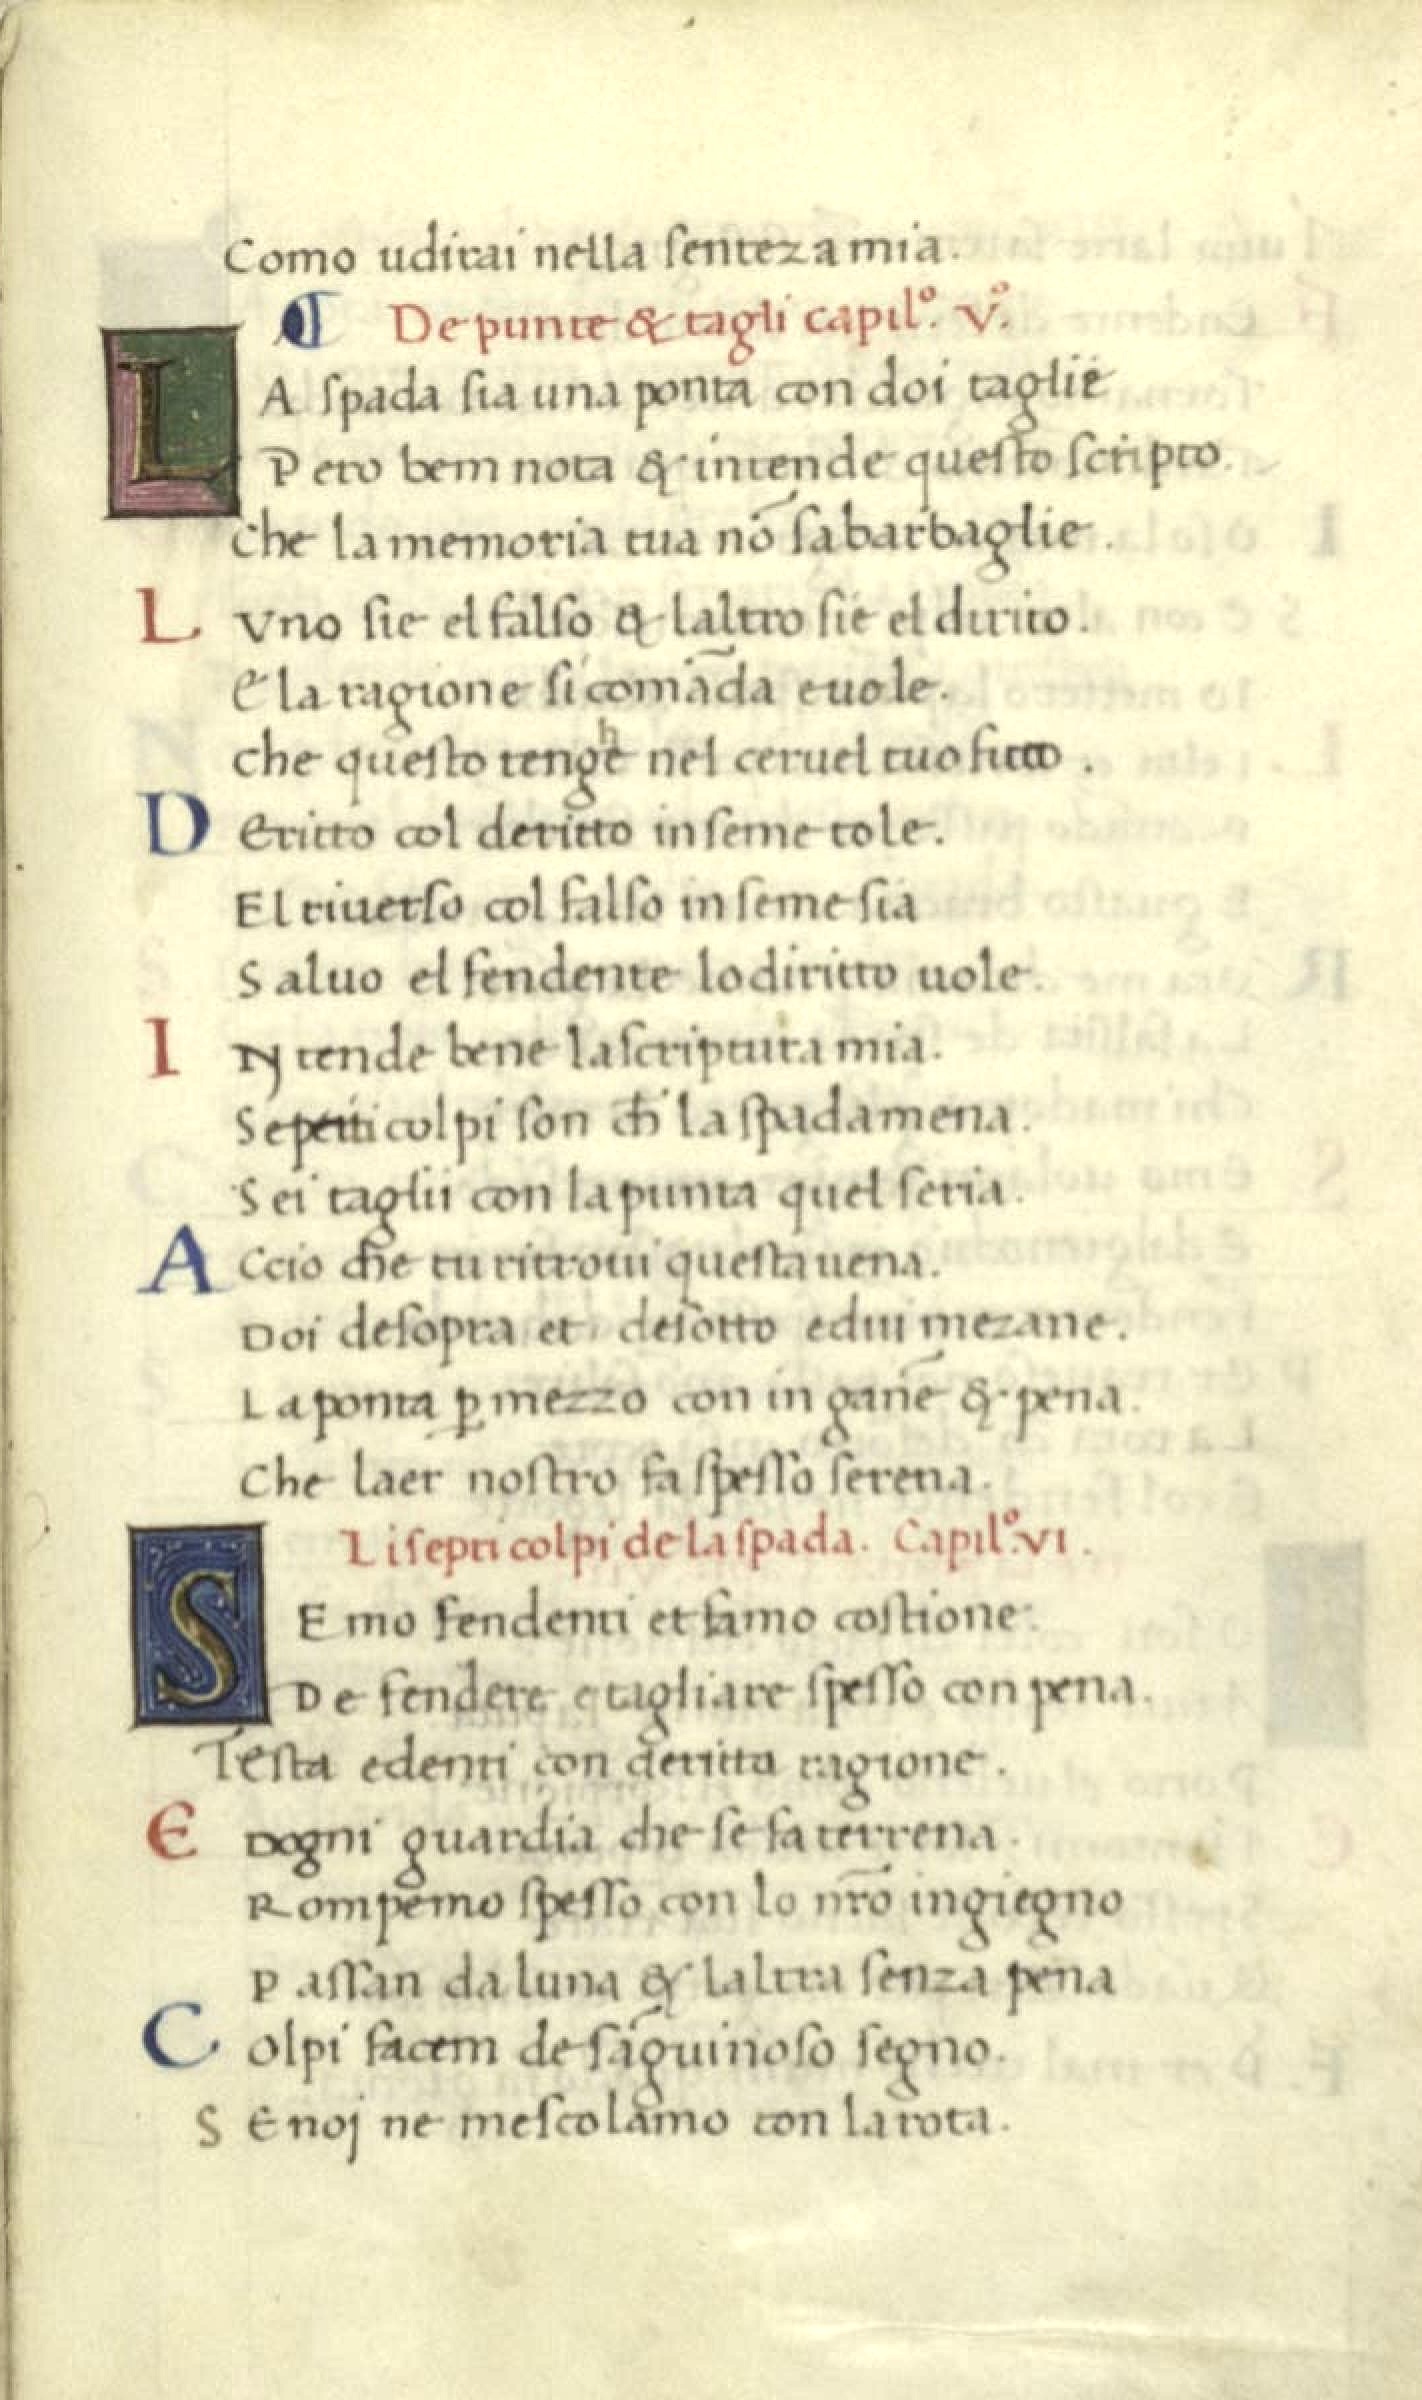 Como udirai nella senteza mia.
¶ De punte & tagli capil.º v.º
LA spada sia una ponta con doi taglie
Pero bem nota & intende questo scripto.
Che la memoria tua nō sabarbaglie.
L Vno sie el falso & laltro sie el dirito.
E la ragione si comāda e uole.
Che questo tenghe nel ceruel tuo fitto.
D Eritto col deritto inseme tole.
El riuerso col falso inseme sia
Saluo el fendente lo diritto uole.
I Ntende bene la scriptura mia.
Septti colpi son ch̄ la spada mena.
Sei taglii con la punta quel feria.
A Ccio che tu ritroui questa uena.
Doi de sopra et de sotto e dui mezane.
La ponta ꝑ mezzo con ingāne & pena.
Che laer nostro fa spesso serena.
Li septi colpi de la spada. Capil.º VI.
SEmo fendenti et famo costione.
De fendere e tagliare spesso con pena.
Testa e denti con deritta ragione.
E Dogni guardia che se fa terrena.
Rompemo spesso con lo nr̄o ingiegno
Passan da luna & laltra senza pena
C Olpi facem de sāguinoso segno.
SE noj ne mescolamo con la rota.